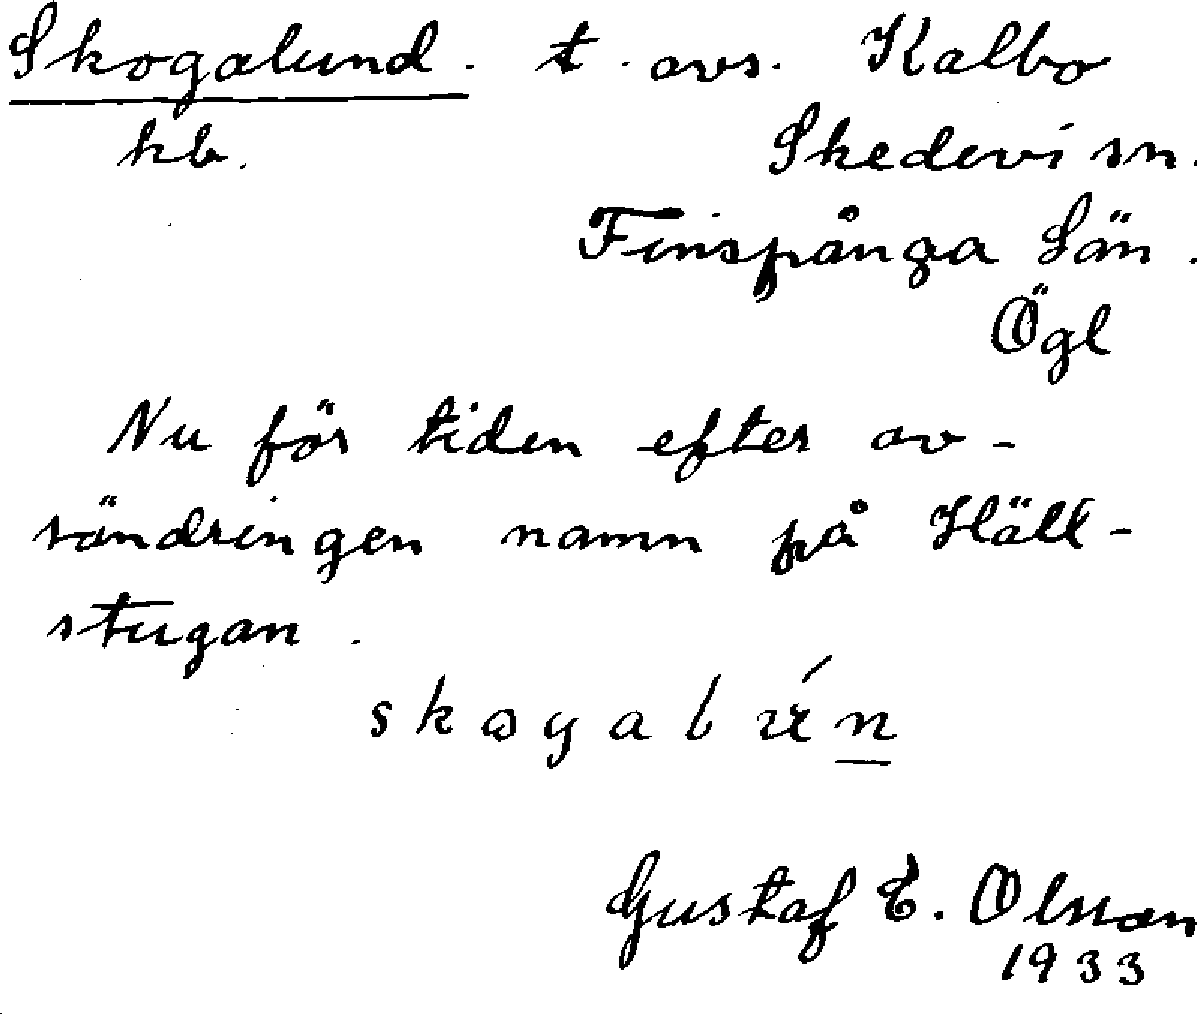 Skogalund. t. avs. Kalbo
kb. Skedevi sn.
Finspånga Län.
Ögl
Nu för tiden efter av-
söndringen namn på Häll-
stugan.
Gustaf E. Olsson
1933